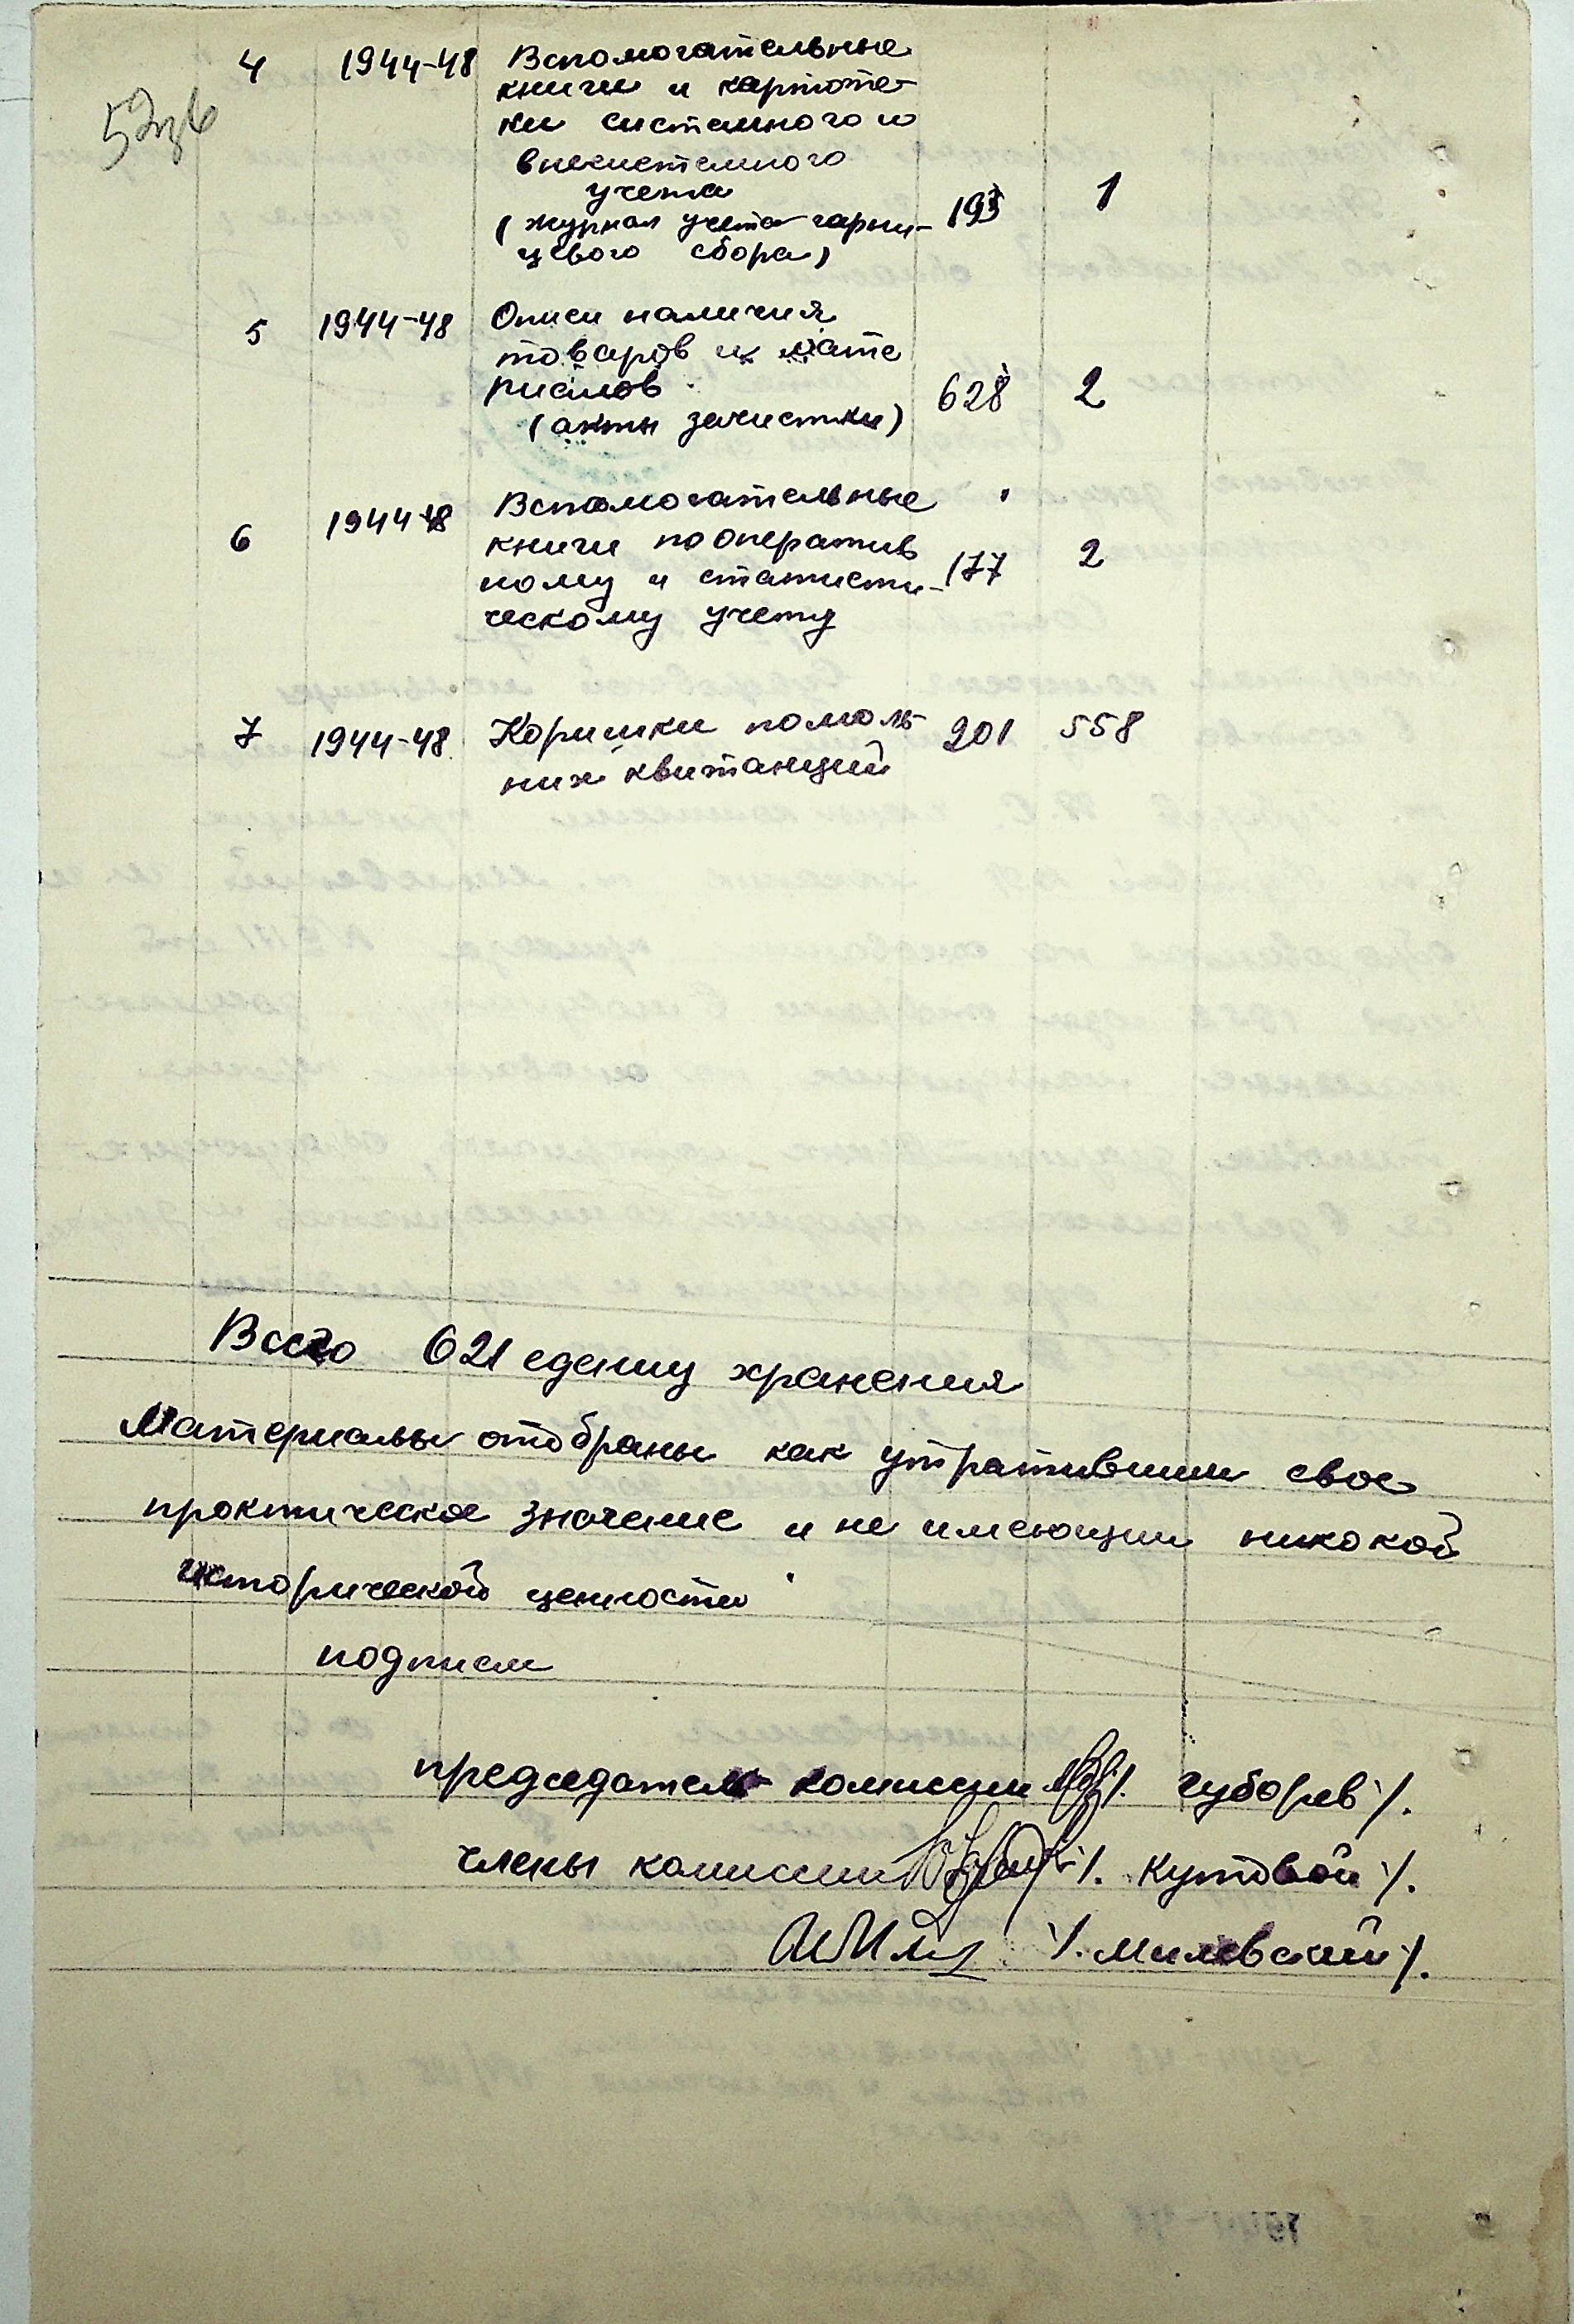 4 1944-48 Вспомогательные
книги и картоте-
ки системного и
внесистемного
учета
(журнал учета гарн- 193 1
цевого сбора)
5 1944-48 Описи наличия
товаров и мате
риалов 628 2
(акты зачистки)
6 1944-48 Вспомогательные
книги по оператив
ному и статисти- 177 2
ческому учету
7 1944-48 Коришки помоль- 201 558
них квитанций
Всего 621 еденицу хранения
Материалы отобраны как утратившии свое
практическое значение и не имеющии никокой
исторической ценности
подписи
председатель комиссии /. губорев /.
члены комиссии /. Кутовой /.
/. Милевский /.